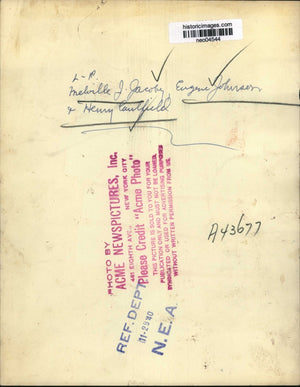 historicimages.com
neo04544
L-R
Melville J. Jacoby, Eugene Johnson
& Henry Caulfield
PHOTO BY
ACME NEWSPICTURES, Inc.
461 EIGHTH AVE., NEW YORK CITY
Please Credit "Acme Photo"
THIS PICTURE IS SOLD TO YOU FOR YOUR
PUBLICATION ONLY AND MUST NOT BE LOANED,
SYNDICATED OR USED FOR ADVERTISING PURPOSES
WITHOUT WRITTEN PERMISSION FROM US.
A43677
REF. DEPT.
N. E. A